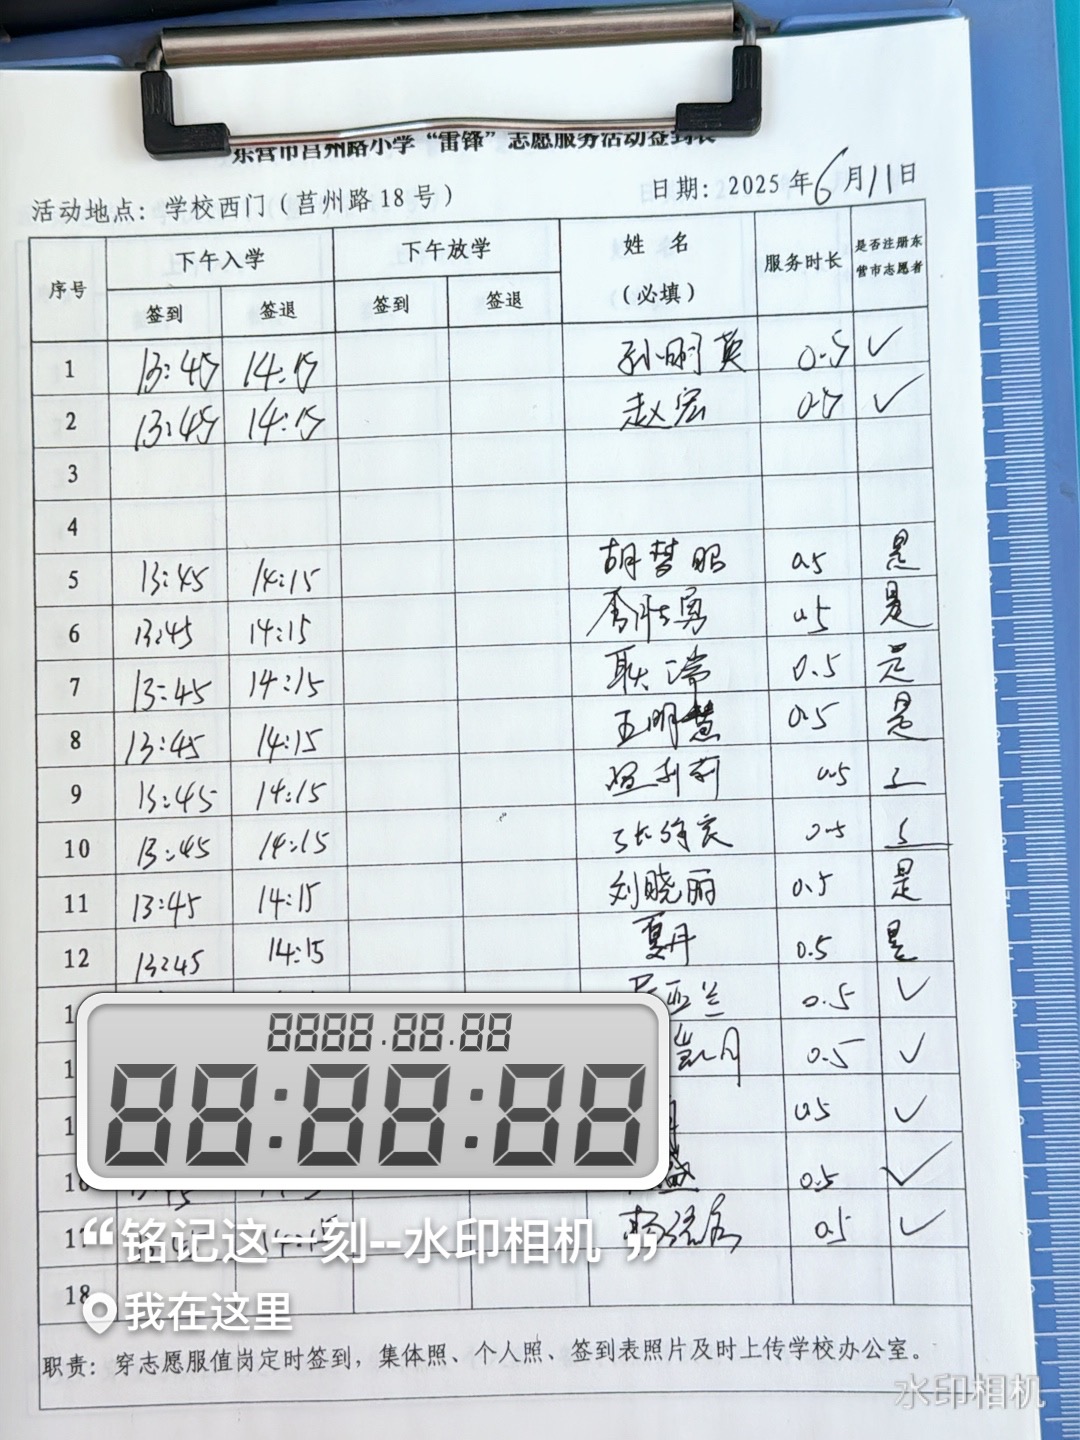 东营市莒州路小学“雷锋”志愿服务活动签到表
活动地点：学校西门（莒州路18号） 日期：2025年6月11日
序号 下午入学 下午放学 姓名（必填） 服务时长 是否注册东营市志愿者
签到 签退 签到 签退
1 13:45 14:15 孙明英 0.5 ✓
2 13:45 14:15 赵宏 0.5 ✓
3
4
5 13:45 14:15 胡梦昭 0.5 是
6 13:45 14:15 0.5 是
7 13:45 14:15 0.5 是
8 13:45 14:15 王明慧 0.5 是
9 13:45 14:15 0.5
10 13:45 14:15 0.5
11 13:45 14:15 刘晓丽 0.5 是
12 13:45 14:15 夏丹 0.5 是
亚兰 0.5 ✓
凯月 0.5 ✓
0.5 ✓
16 盛 0.5 ✓
0.5 ✓
18
8888.88.88
88:88:88
“铭记这一刻--水印相机”
我在这里
职责：穿志愿服值岗定时签到，集体照、个人照、签到表照片及时上传学校办公室。
水印相机